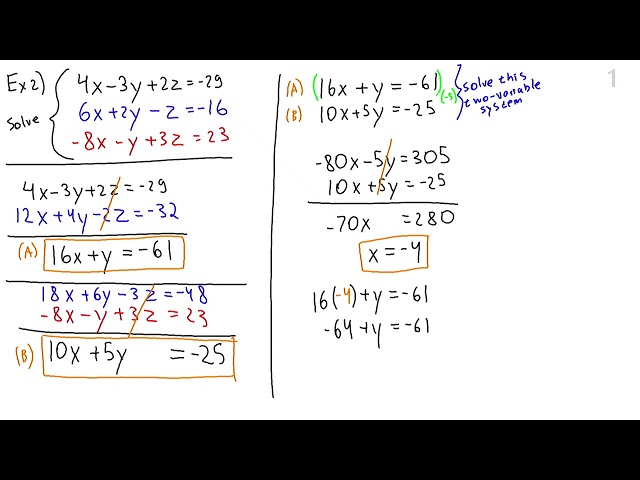 Ex 2)
Solve
4x-3y+2z=-29
6x+2y-z=-16
-8x-y+3z=23
4x-3y+2z=-29
12x+4y-2z=-32
(A) 16x+y=-61
18x+6y-3z=-48
-8x-y+3z=23
(B) 10x+5y =-25
(A) (16x+y=-61)(-5)
(B) 10x+5y=-25
Solve this
two-variable
system
-80x-5y=305
10x+5y=-25
-70x =280
x=-4
16(-4)+y=-61
-64+y=-61
1